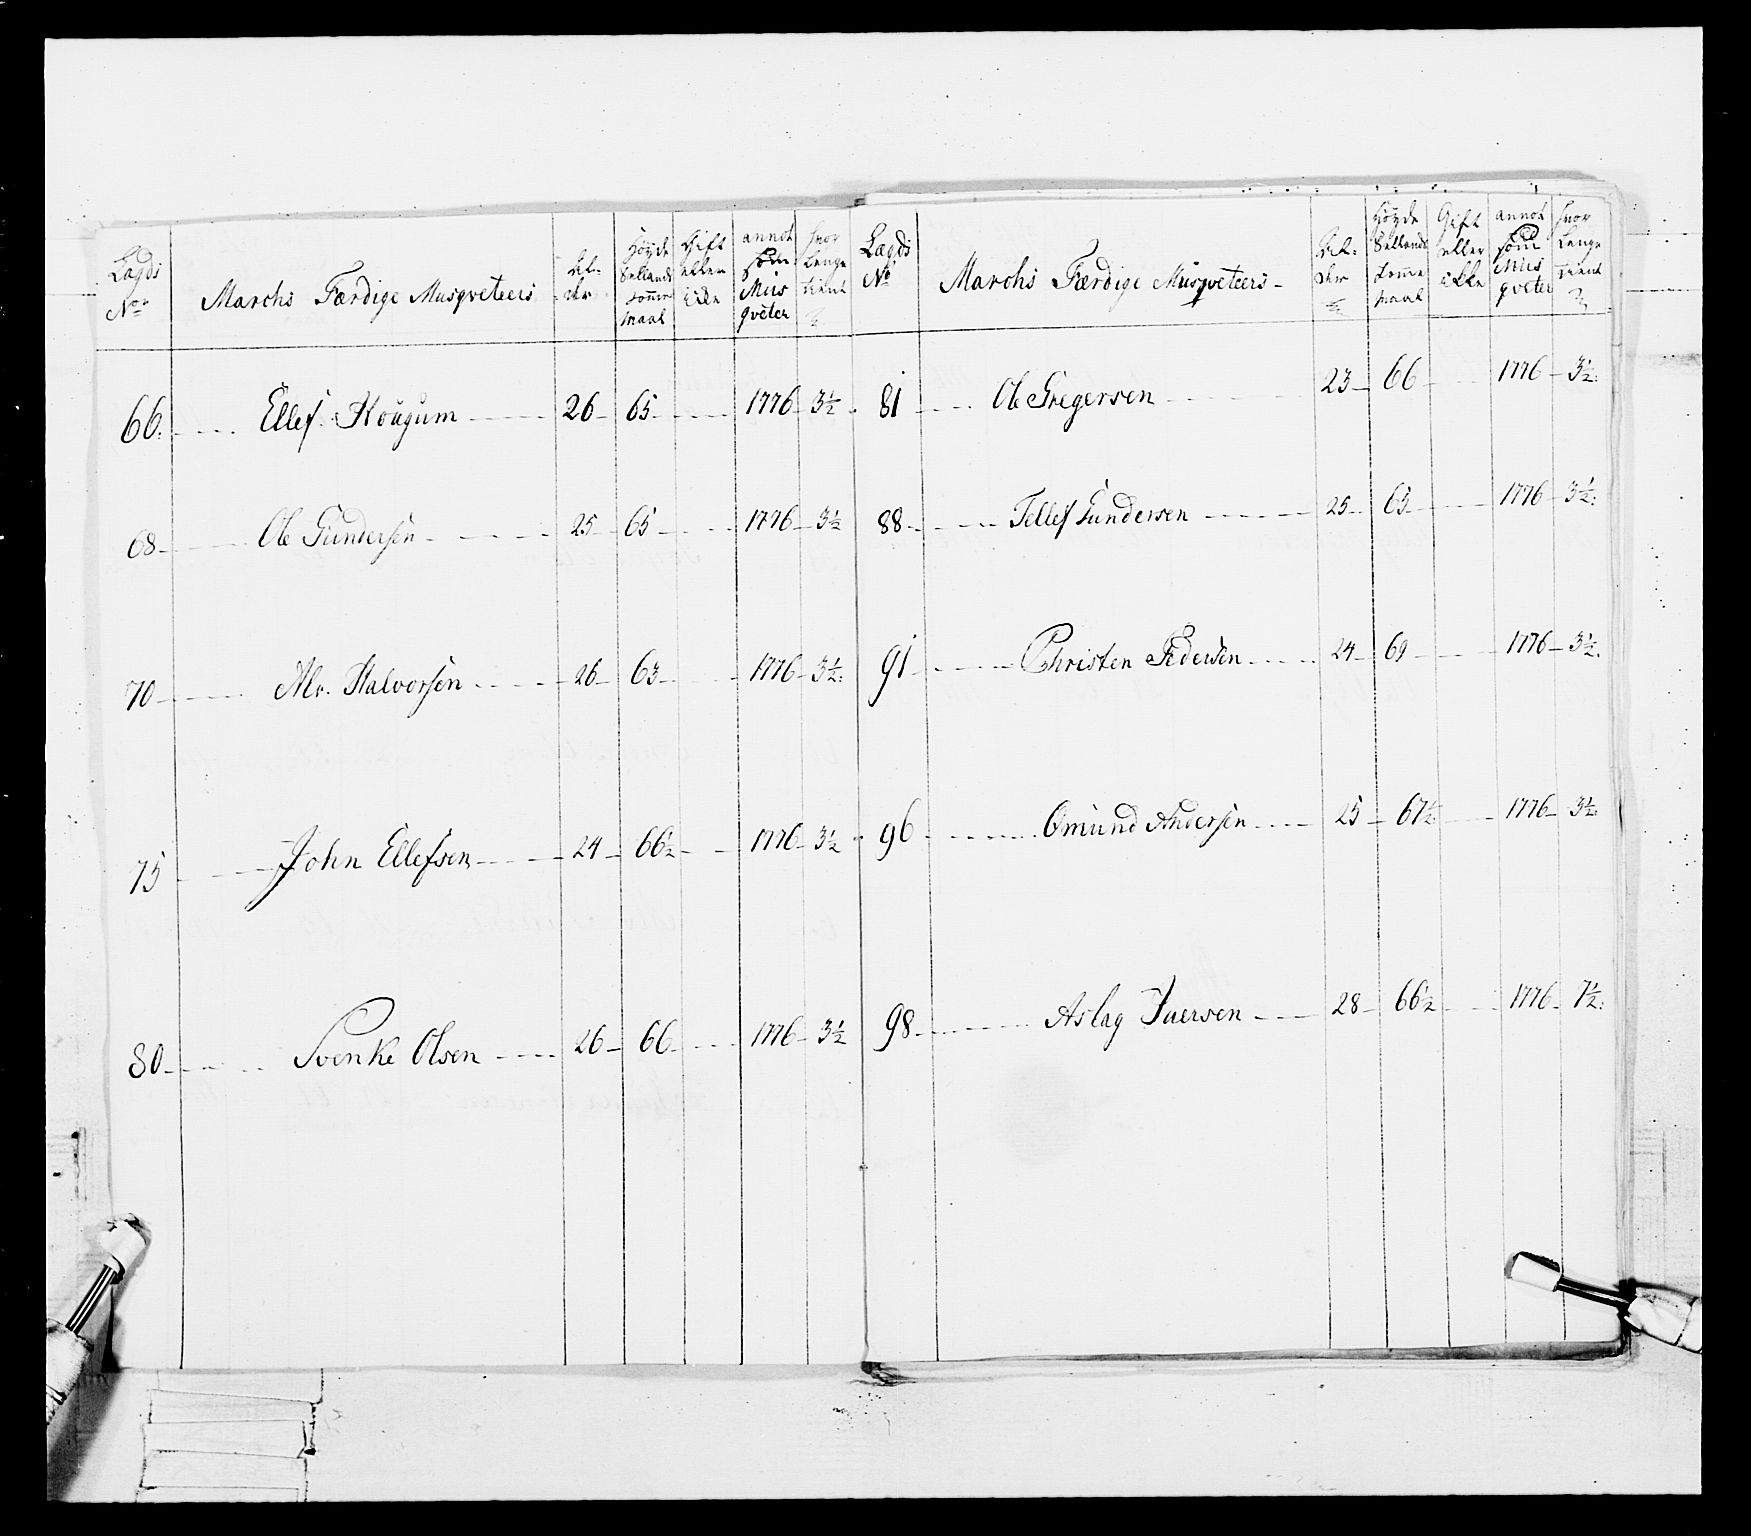 Lægds No | Marchs Færdige Musqveteers | Al- der | Høyde Sellands tomme maal | Gift eller ikke | annot som Mus qveter | hvor Lenge tient
66. | Ellef Hougum | 26 | 65 | | 1776 | 3½
68 | Ole Gundersen | 25 | 65 | | 1776 | 3½
70 | Halvorsen | 26 | 63 | | 1776 | 3½
75 | John Ellefsen | 24 | 66½ | | 1776 | 3½
80 | Svenke Olsen | 26 | 66 | | 1776 | 3½
Lægds No | Marchs Færdige Musqveteers | Al- der | Høyde Sellands tomme maal | Gift eller ikke | annot som Mus qveter | hvor Lenge tient
81 | Ole Gregersen | 23 | 66 | | 1776 | 3½
88 | Tellef Gundersen | 25 | 65 | | 1776 | 3½
91 | Christen Pedersen | 24 | 69 | | 1776 | 3½
96 | Omund Andersen | 25 | 67½ | | 1776 | 3½
98 | Aslag Iversen | 28 | 66½ | | 1776 | 7½